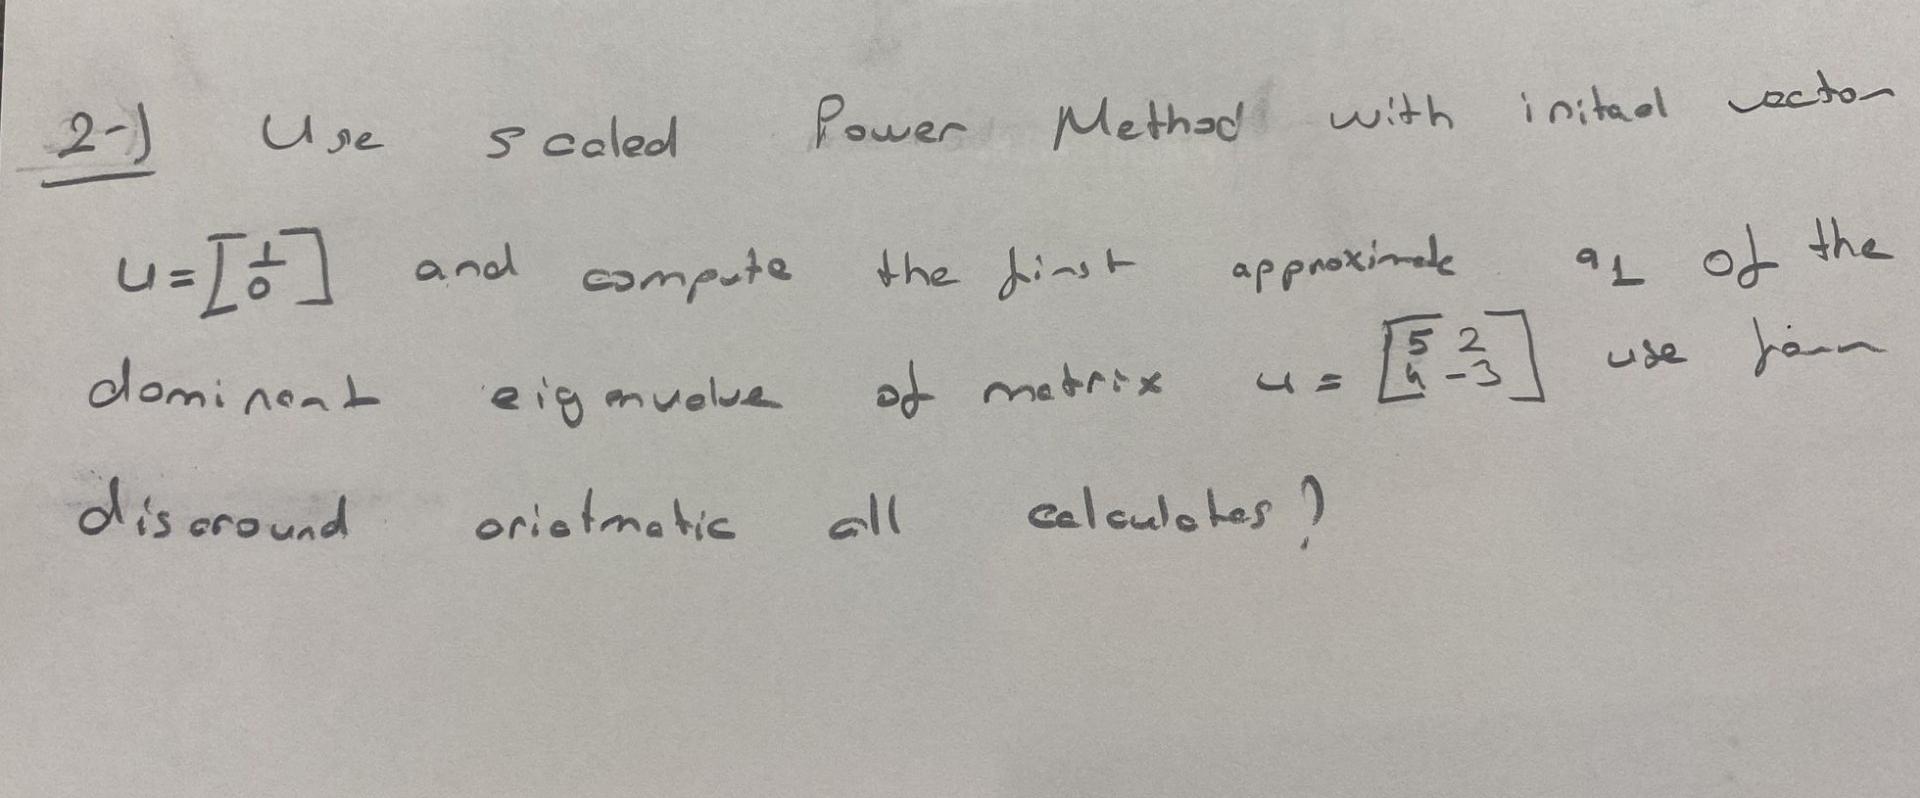 2-) Use scaled Power Method with initaol vector
u = [1 0] and compute the first approximate a1 of the
dominant eigenvalue of matrix u = [5 2 4 -3] use
disaround ariatmatic all calculates?